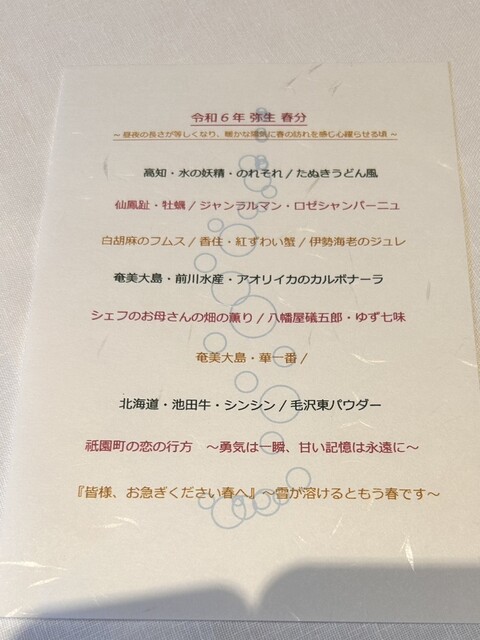 令和６年 弥生 春分
~ 昼夜の長さが等しくなり、暖かな陽気に春の訪れを感じ心躍らせる頃 ~
高知・水の妖精・のれそれ / たぬきうどん風
仙鳳趾・牡蠣 / ジャンラルマン・ロゼシャンパーニュ
白胡麻のフムス / 香住・紅ずわい蟹 / 伊勢海老のジュレ
奄美大島・前川水産・アオリイカのカルボナーラ
シェフのお母さんの畑の薫り / 八幡屋礒五郎・ゆず七味
奄美大島・華一番 /
北海道・池田牛・シンシン / 毛沢東パウダー
祇園町の恋の行方　～勇気は一瞬、甘い記憶は永遠に～
『皆様、お急ぎください春へ』～雪が溶けるともう春です～